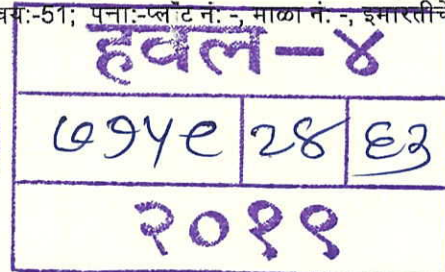 वय:-51; पत्ता:-प्लॉट नं: -, माळा नं: -, इमारतीचे
हवल-४
७१५९ २४ ६३
२०१९